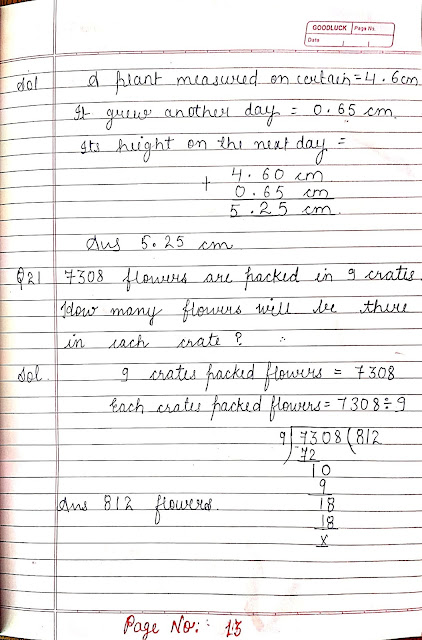 GOODLUCK Page No.
Date
Sol A plant measured on certain = 4.6cm
It grew another day = 0.65 cm.
Its height on the next day =
4.60 cm
+ 0.65 cm
5.25 cm.
Ans 5.25 cm
Q21 7308 flowers are packed in 9 crates.
How many flowers will be there
in each crate ?
Sol. 9 crates packed flowers = 7308
Each crates packed flowers = 7308÷9
9 7308 ( 812
-72
10
9
Ans 812 flowers. 18
18
x
Page No:- 15